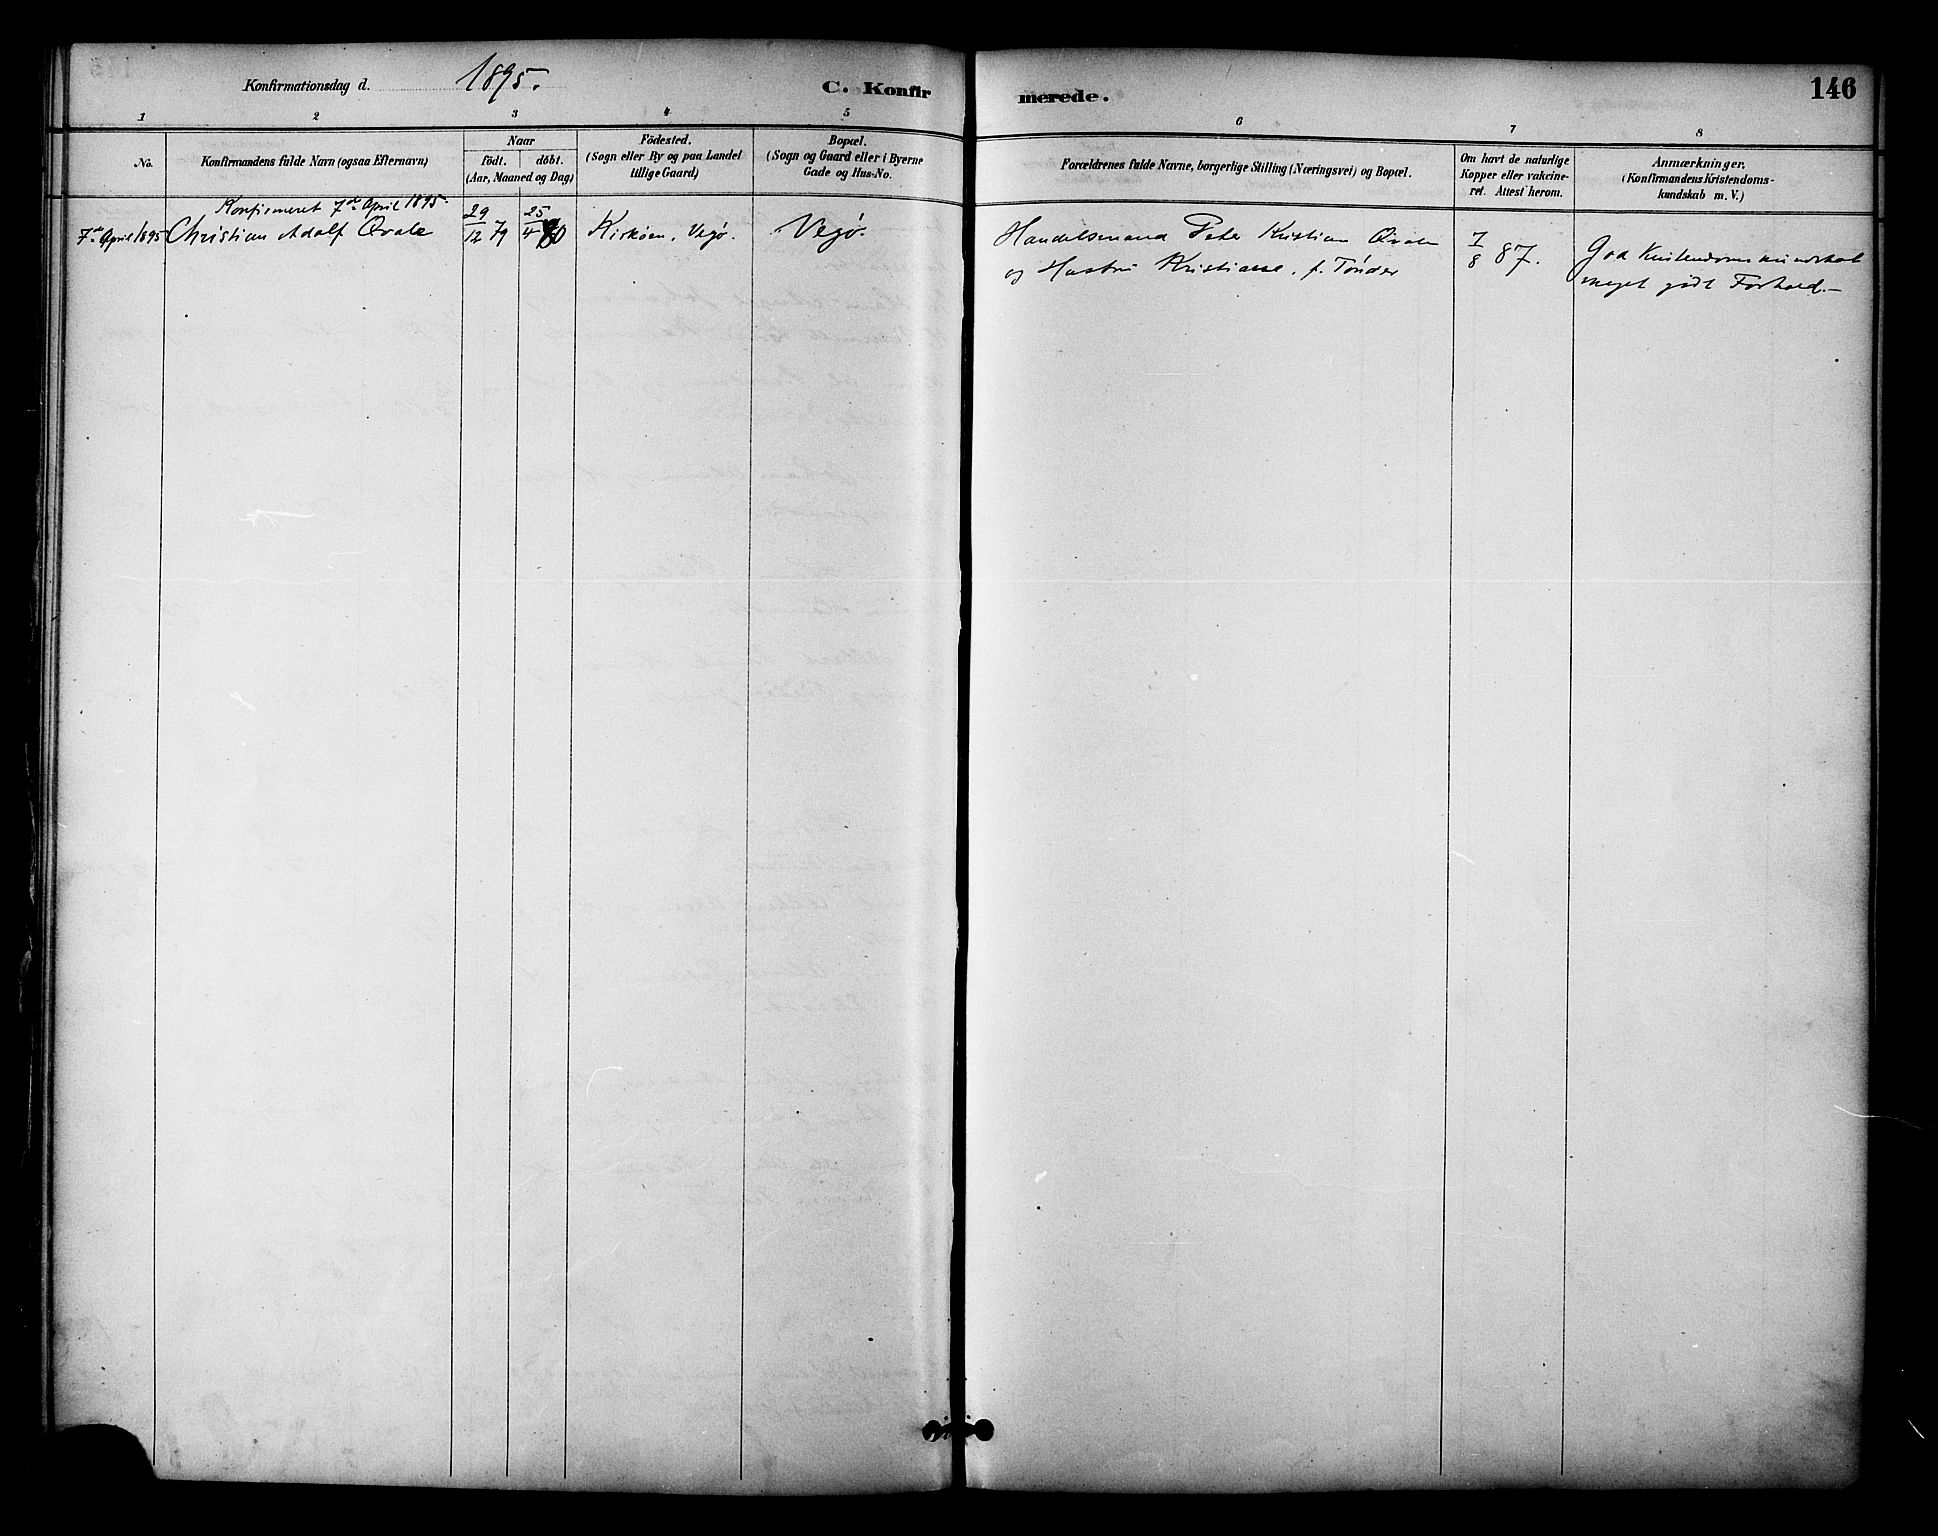 Konfirmationsdag d. 1895.
C. Konfirmerede.
146
1 2 3 4 5 6 7 8
No.
Konfirmandens fulde Navn (ogsaa Efternavn)
Naar
födt. döbt.
(Aar, Maaned og Dag)
Födested.
(Sogn eller By og paa Landet
tillige Gaard)
Bopæl.
(Sogn og Gaard eller i Byerne
Gade og Hus-No.
Forældrenes fulde Navne, borgerlige Stilling (Næringsvei) og Bopæl.
Om havt de naturlige
Kopper eller vakcine-
ret. Attest herom.
Anmærkninger.
(Konfirmandens Kristendoms-
kundskab m. V.)
Konfirmeret 7de April 1895.
7de April 1895 Christian Adolf Qvale 29/12 79 25/4 80 Kirköen, Vegø. Vegø. Handelsmand Peter Kristian Qvale 7/8 87. God Kristendomskundskab
og Hustru Kristiane, f. Tönder meget godt Forhold.—